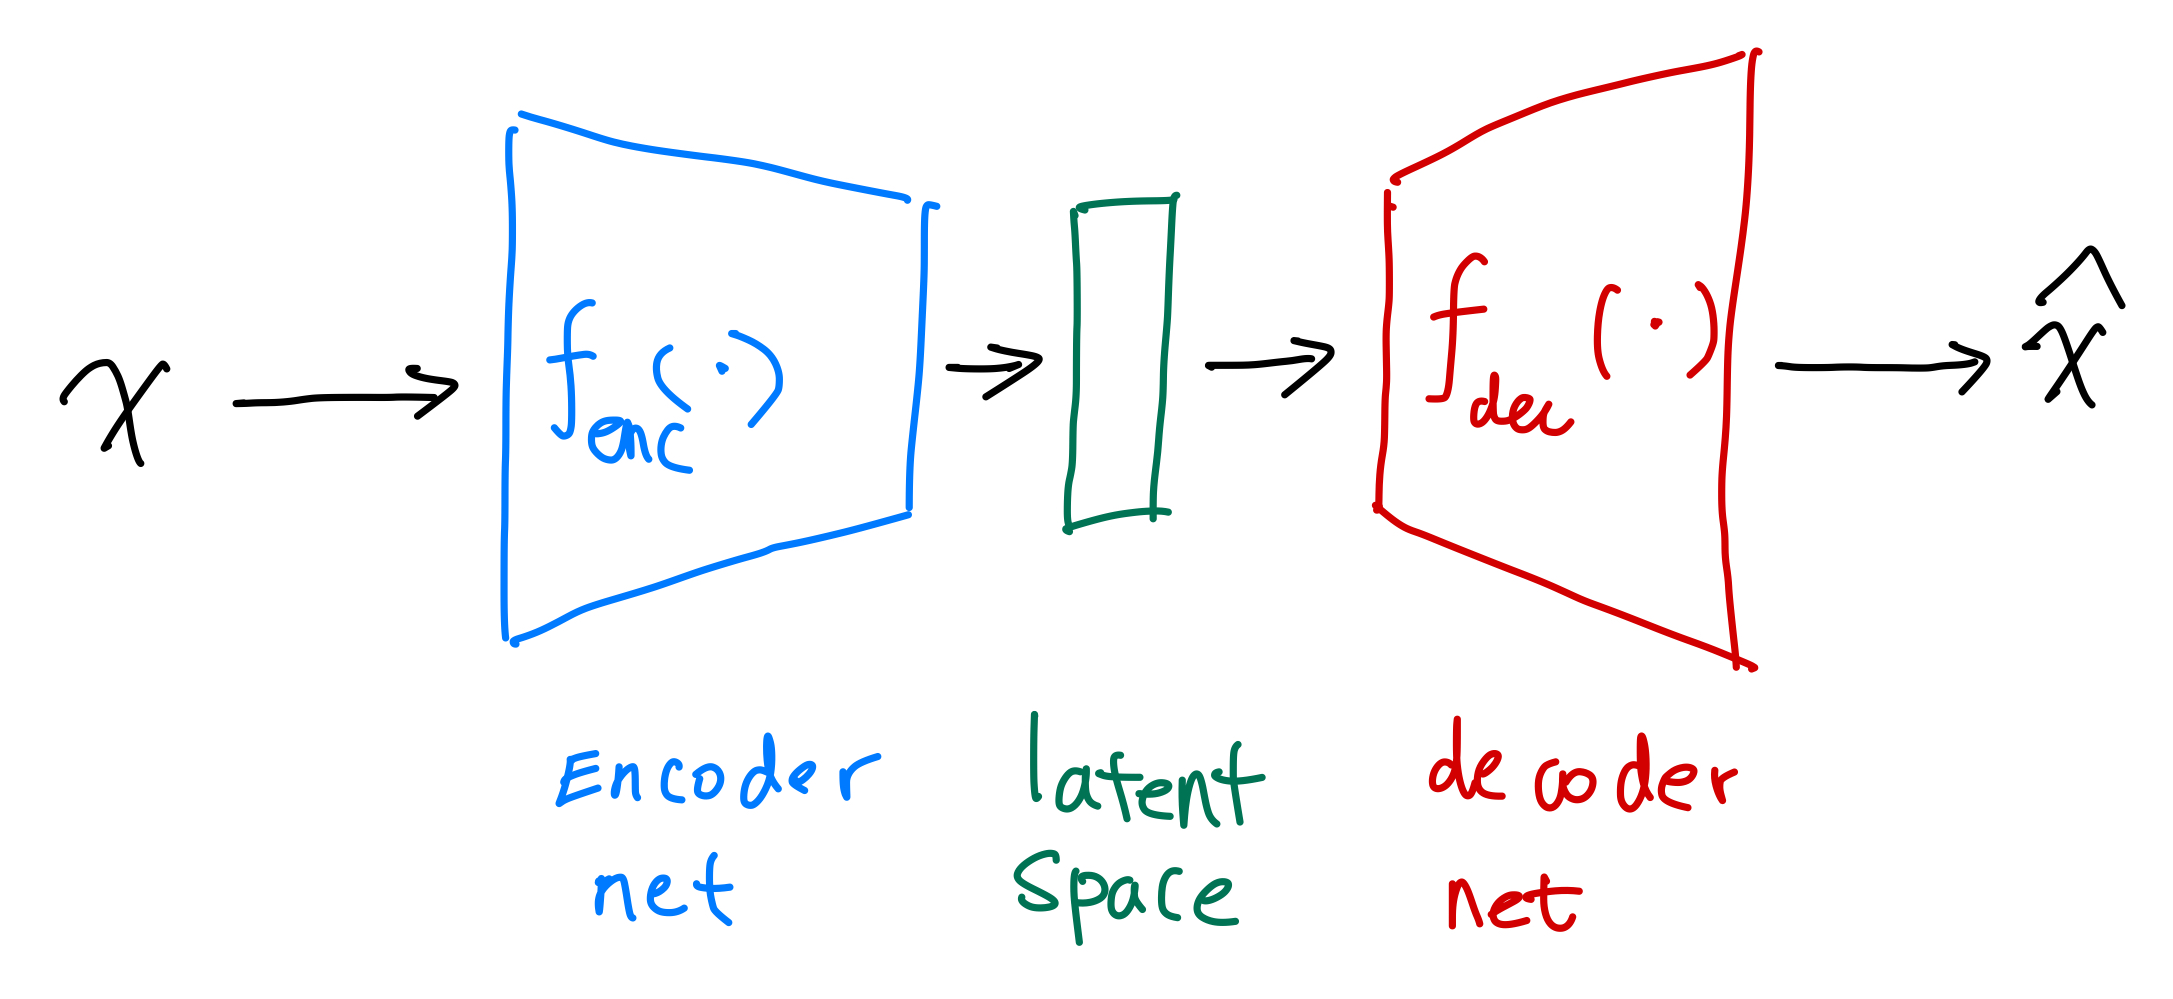 x
f_enc(·)
f_dec(·)
x̂
Encoder
net
latent
space
decoder
net